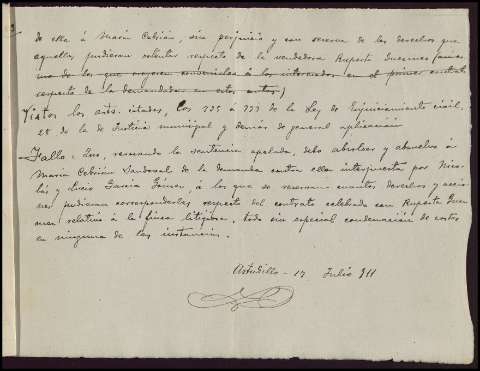 de ella á María Cebrián, sin perjuicio y con reserva de los derechos que
aquellos pudieran ostentar respecto de la vendedora Ruperta Guermes
de los que creyeren á los interesados en el primer contrato
respecto de la demandada en estos autos.)
Vistos los arts. citados, los 735 á 737 de la Ley de Enjuiciamiento civil,
28 de la de Justicia municipal y demás de general aplicación
Fallo: Que, revocando la sentencia apelada, debo absolver y absuelvo á
María Cebrián Sandoval de la demanda contra ella interpuesta por Nico-
lás y Lucio García Gómez, á los que se reservan cuantos derechos y accio-
nes pudieran corresponderles respecto del contrato celebrado con Ruperta Guer-
mes relativo á la finca litigiosa, todo sin especial condenación de costas
en ninguna de las instancias.
Astudillo - 17 Julio 911